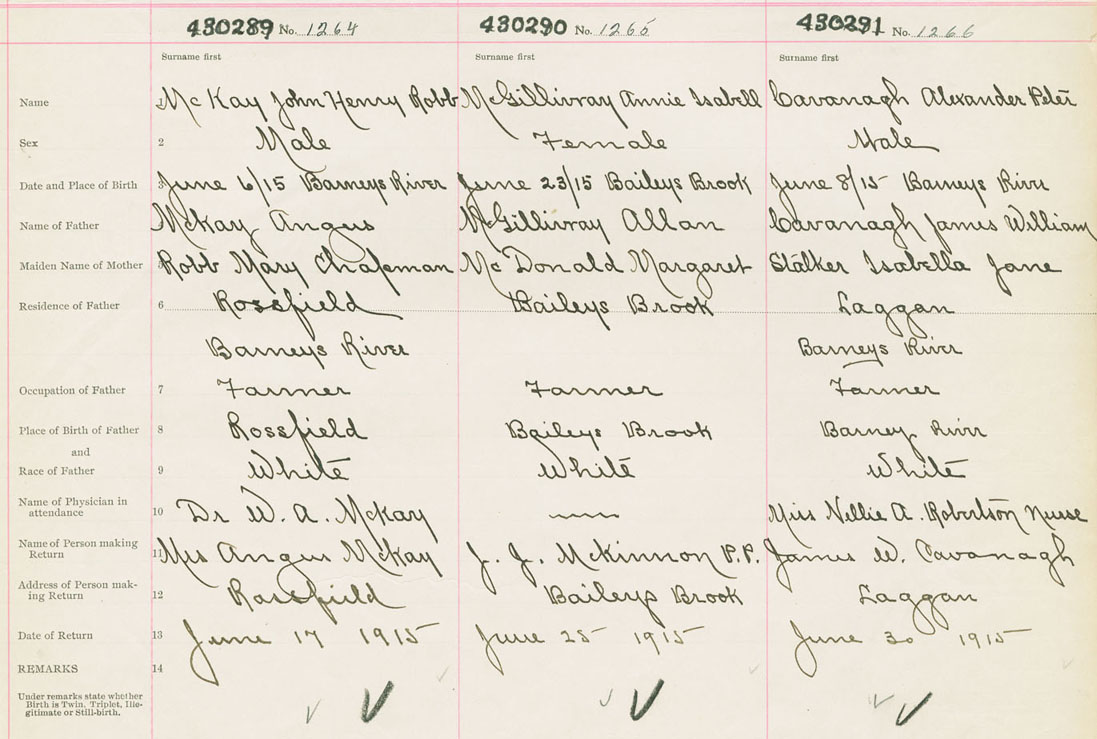 430289 No. 1264 430290 No. 1265 430291 No. 1266
Surname first Surname first Surname first
Name 1 McKay John Henry Robb McGillivray Annie Isabell Cavanagh Alexander Peter
Sex 2 Male Female Male
Date and Place of Birth 3 June 6/15 Barneys River June 23/15 Baileys Brook June 8/15 Barneys River
Name of Father McKay Angus McGillivray Allan Cavanagh James William
Maiden Name of Mother Robb Mary Chapman McDonald Margaret Stalker Isabella Jane
Residence of Father 6 Rossfield Baileys Brook Laggan
Barneys River Barneys River
Occupation of Father 7 Farmer Farmer Farmer
Place of Birth of Father 8 Rossfield Baileys Brook Barneys River
and
Race of Father 9 White White White
Name of Physician in
attendance 10 Dr W. A. McKay Miss Nellie A. Robertson Nurse
Name of Person making
Return 11 Mrs Angus McKay J. J. McKinnon P.P. James W. Cavanagh
Address of Person mak-
ing Return 12 Rossfield Baileys Brook Laggan
Date of Return 13 June 17 1915 June 25 1915 June 30 1915
REMARKS 14
Under remarks state whether
Birth is Twin, Triplet, Ille-
gitimate or Still-birth.